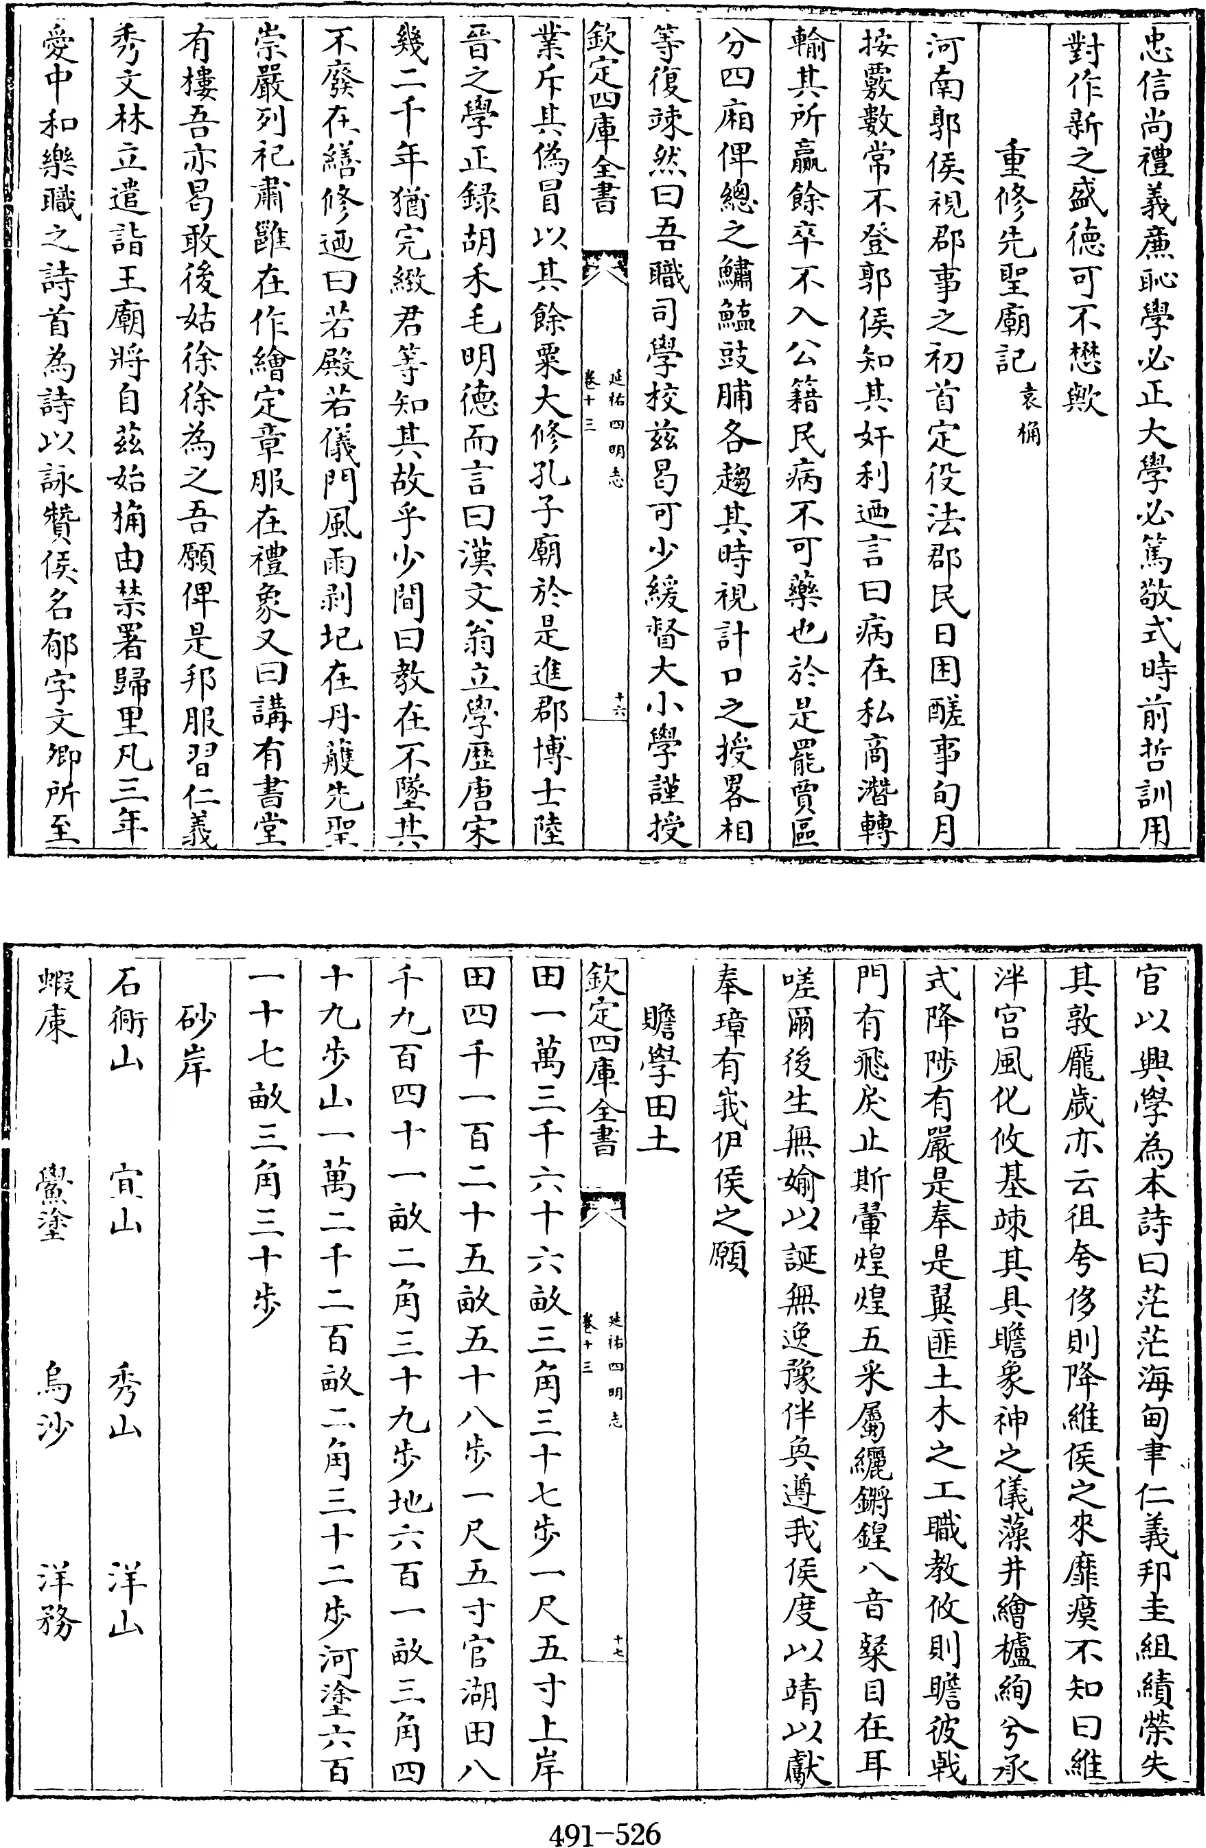 忠信尚禮義㢘恥學必正大學必篤敬式時前哲訓用
對作新之盛德可不懋歟
重修先聖廟記 袁桷
河南郭侯視郡事之初首定役法郡民日困醝事旬月
按覈數常不登郭侯知其奸利迺言曰病在私商潛轉
輸其所贏餘卒不入公籍民病不可藥也於是罷賈區
分四廂俾總之鱐鰛豉脯各趨其時視計口之授畧相
等復竦然曰吾職司學校兹曷可少緩督大小學謹授
欽定四庫全書
延祐四明志
卷十三
十六
業斥其偽冒以其餘粟大修孔子廟於是進郡博士陸
晉之學正録胡禾毛明德而言曰漢文翁立學歴唐宋
幾二千年猶完緻君等知其故乎少間曰教在不墜其
不廢在繕修迺曰若殿若儀門風雨剥圮在丹雘先聖
崇嚴列祀肅雝在作繪定章服在禮象又曰講有書堂
有樓吾亦曷敢後姑徐徐為之吾願俾是邦服習仁義
秀文林立遣詣王廟將自兹始桷由禁署歸里凡三年
愛中和樂職之詩首為詩以詠贊侯名郁字文卿所至
官以興學為本詩曰茫茫海甸聿仁義邦圭組績榮失
其敦厖歳亦云徂夸侈則降維侯之來靡瘼不知曰維
泮宮風化攸基竦其具瞻象神之儀藻井繪櫨絢兮承
式降陟有嚴是奉是翼匪土木之工職教攸則瞻彼戟
門有飛戾止斯翬煌煌五米屬纚鏘鍠八音粲目在耳
嗟爾後生無媮以誕無逸豫伴奐遵我侯度以靖以獻
奉璋有峩伊侯之願
贍學田土
欽定四庫全書
延祐四明志
卷十三
十七
田一萬三千六十六畝三角三十七步一尺五寸上岸
田四千一百二十五畝五十八步一尺五寸官湖田八
千九百四十一畝二角三十九步地六百一畝三角四
十九步山一萬二千二百畝二角三十二步河塗六百
一十七畝三角三十步
砂岸
石衕山 宜山 秀山 洋山
蝦康 鱟塗 烏沙 洋務
491-526